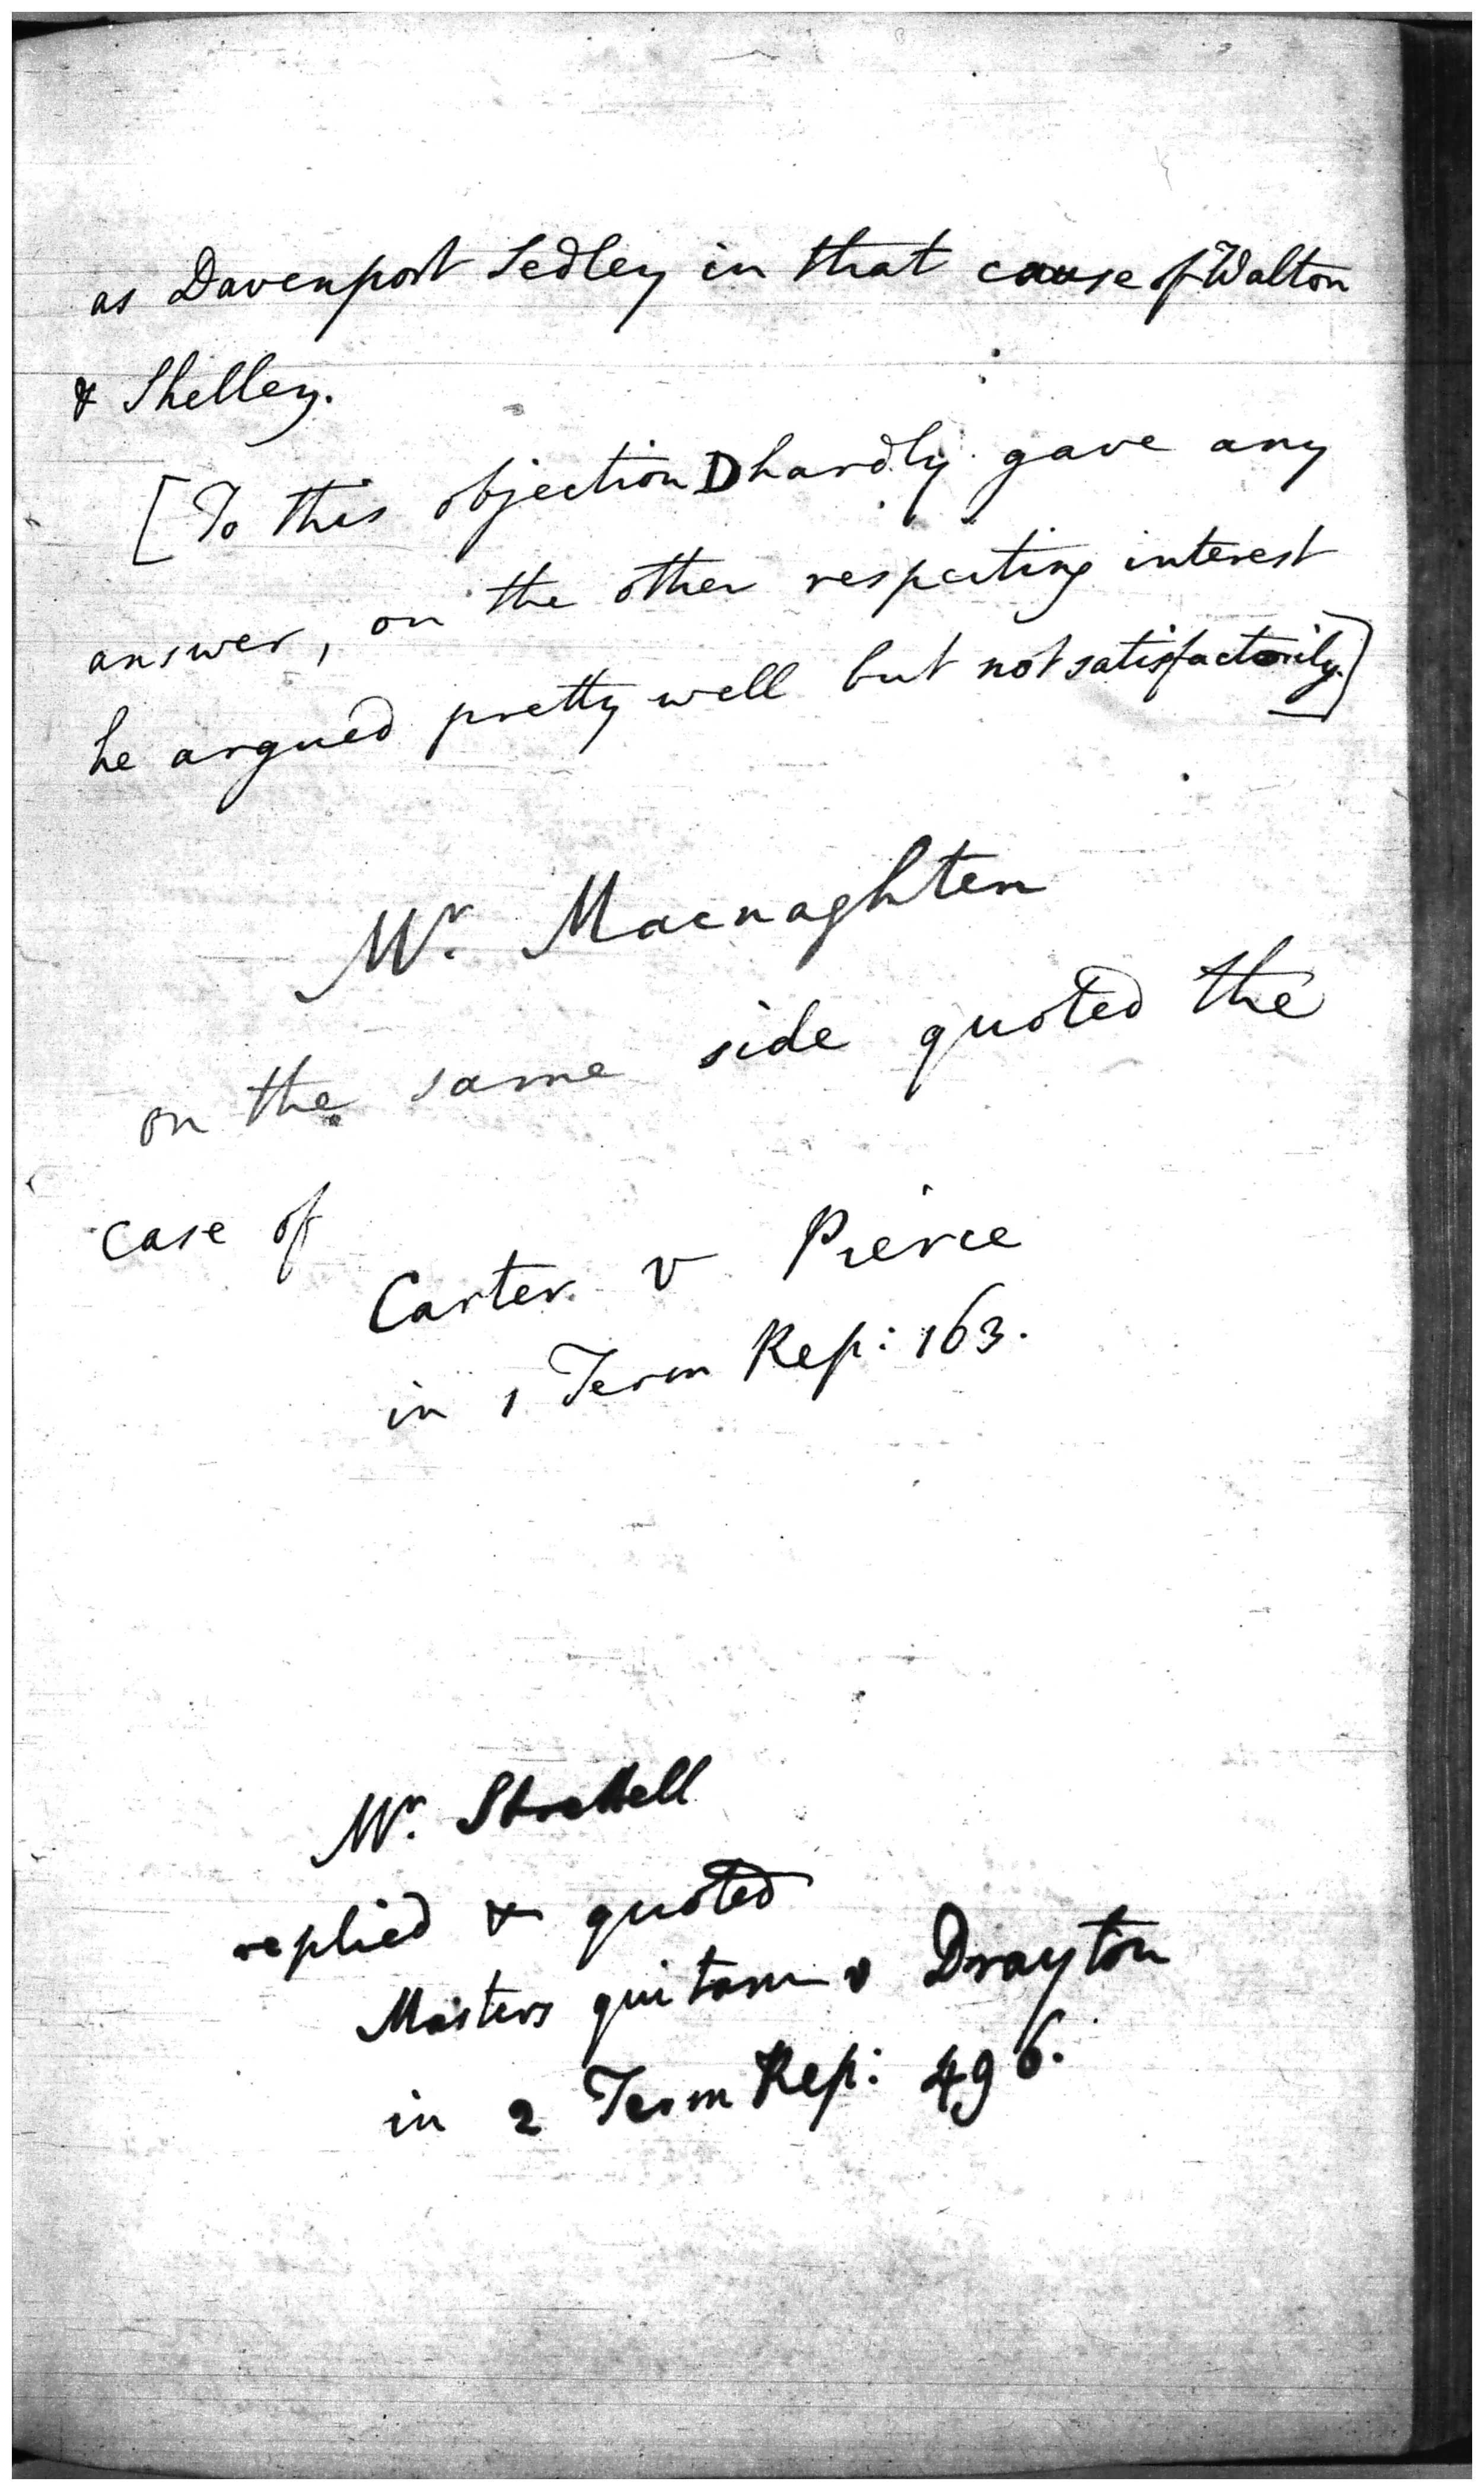 as Davenport Sedley in that cause of Walton
& Shelley.
[To this objection D hardly gave any
answer, on the other respecting interest
he argued pretty well but not satisfactorily.]
Mr. Macnaghten
on the same side quoted the
case of
Carter v Pierce
in 1 Term Rep: 163.
Mr. Strettell
replied & quoted
Masters qui tam v Drayton
in 2 Term Rep: 496.